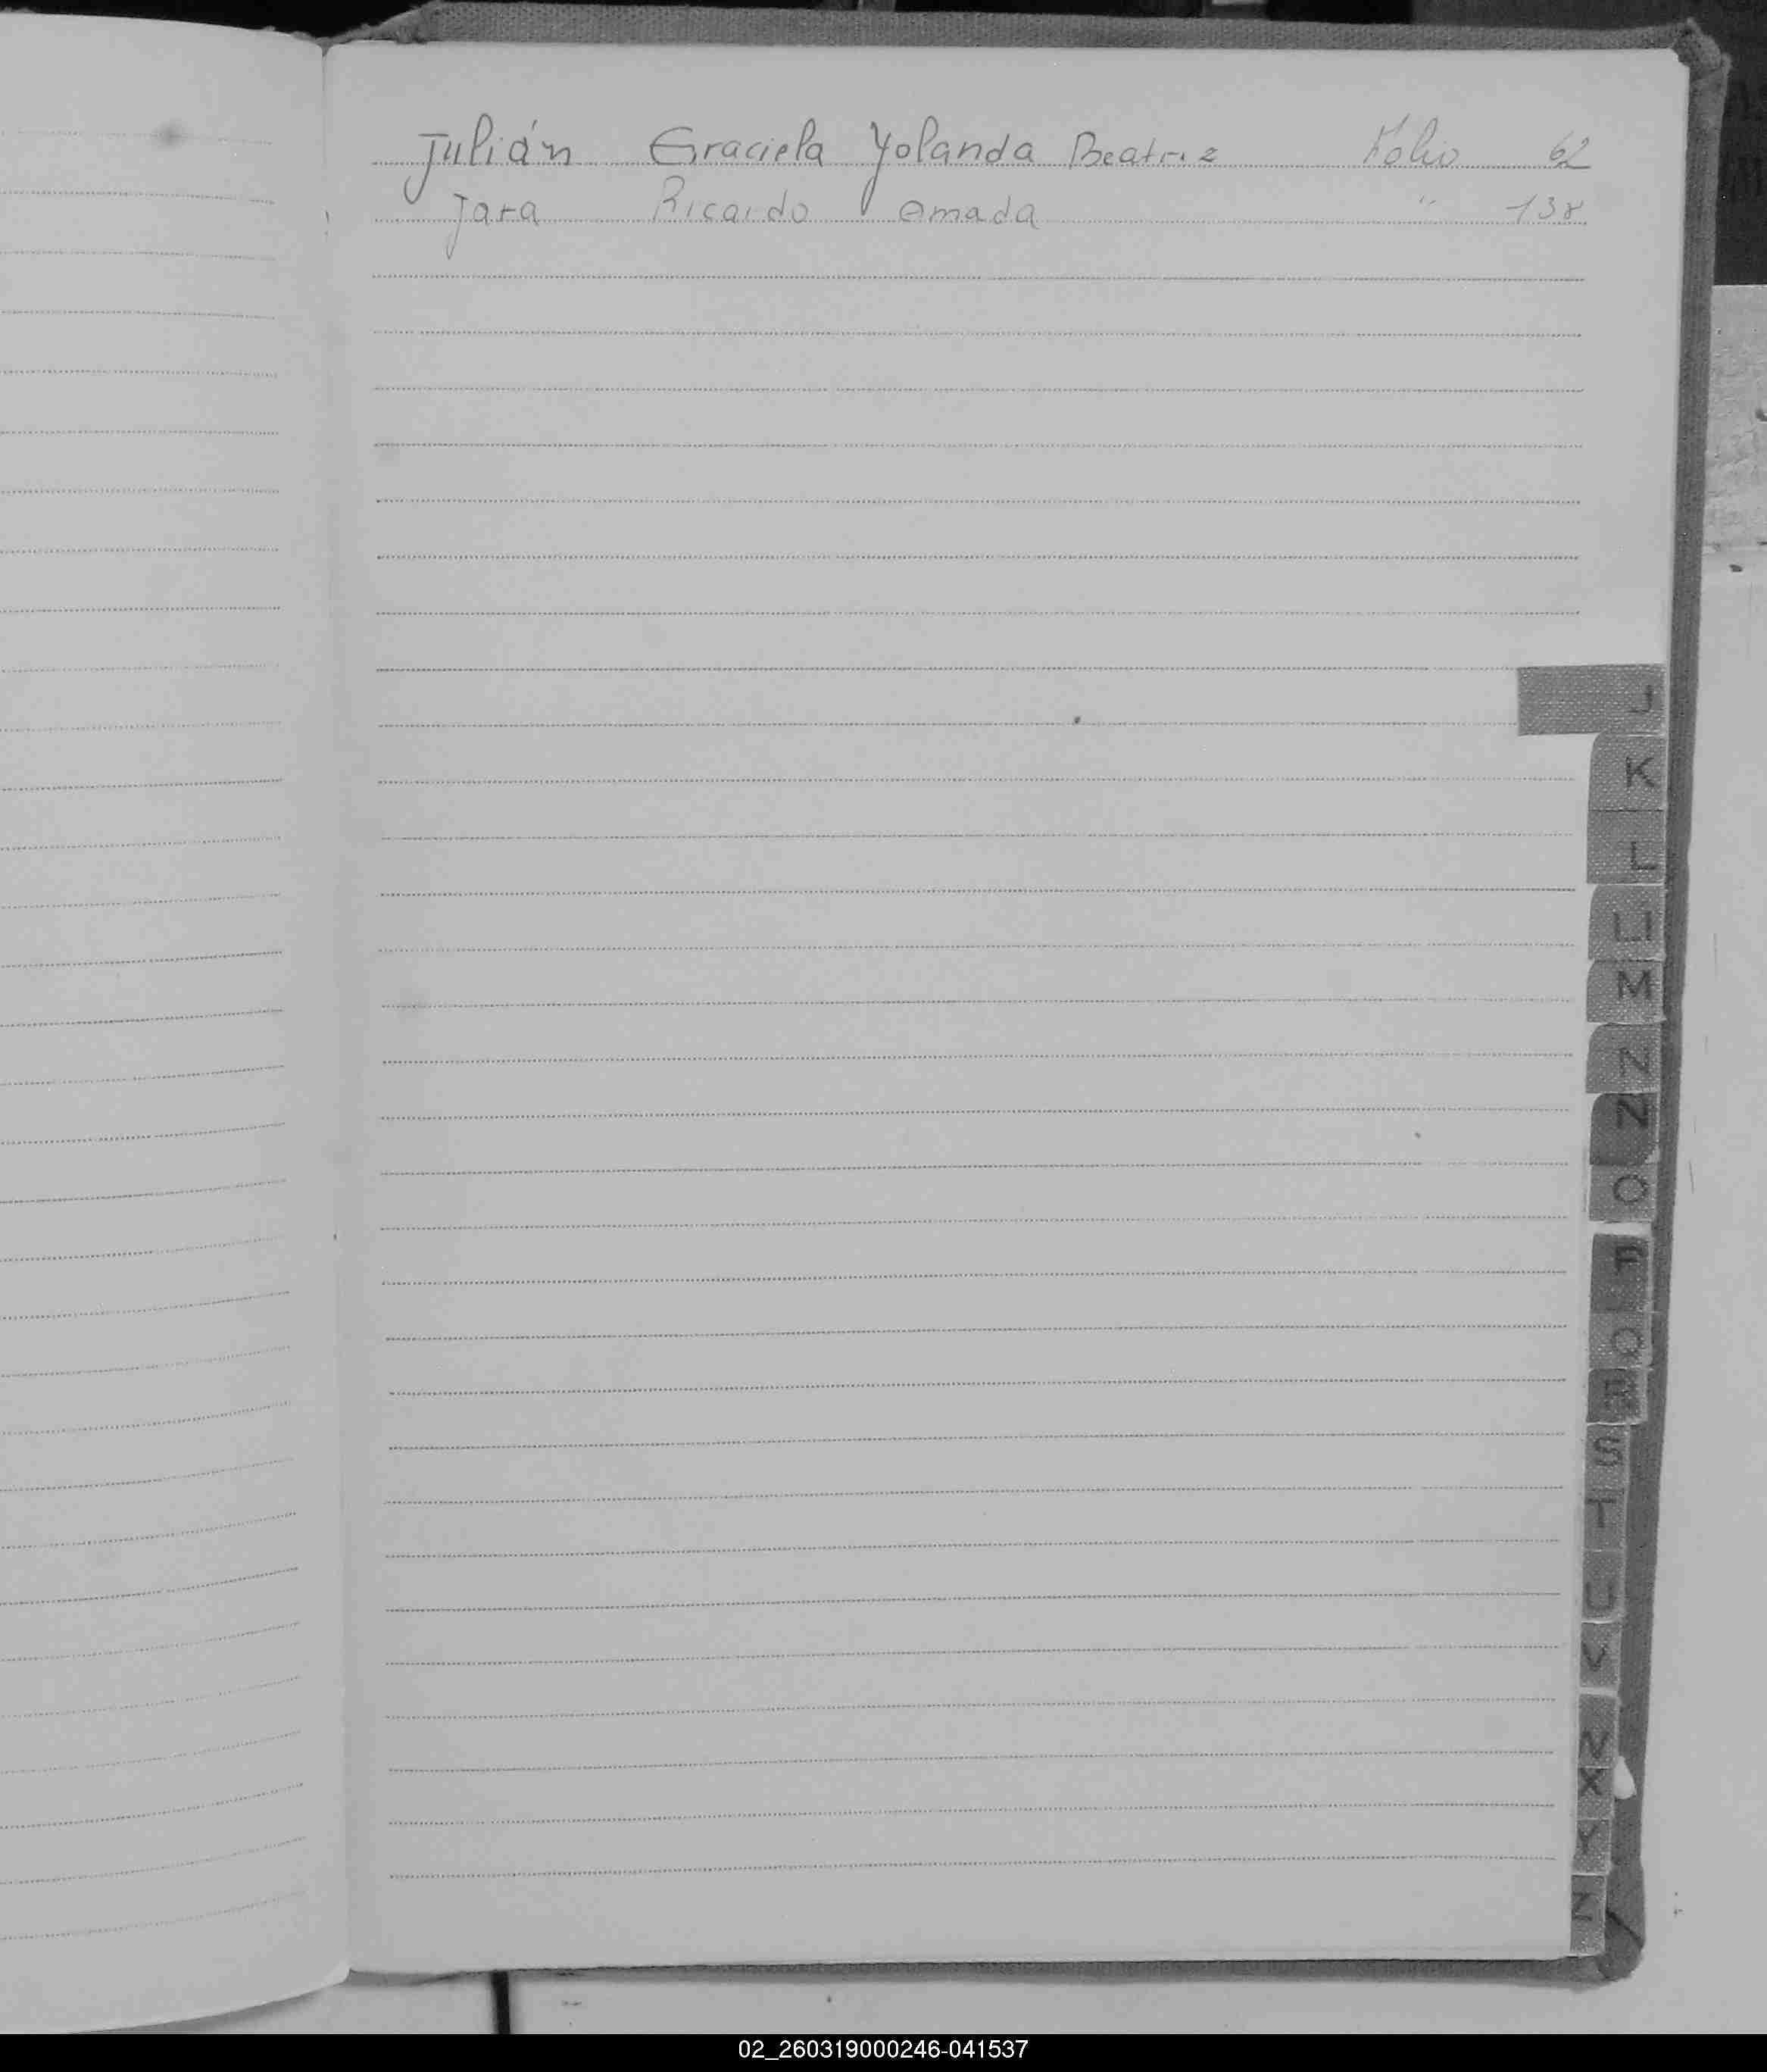 Julián Graciela Yolanda Beatriz Folio 62
Jara Ricardo Omada " 138
J
K
L
Ll
M
N
Ñ
O
P
Q
R
S
T
U
V
X
Y
Z
02_260319000246-041537